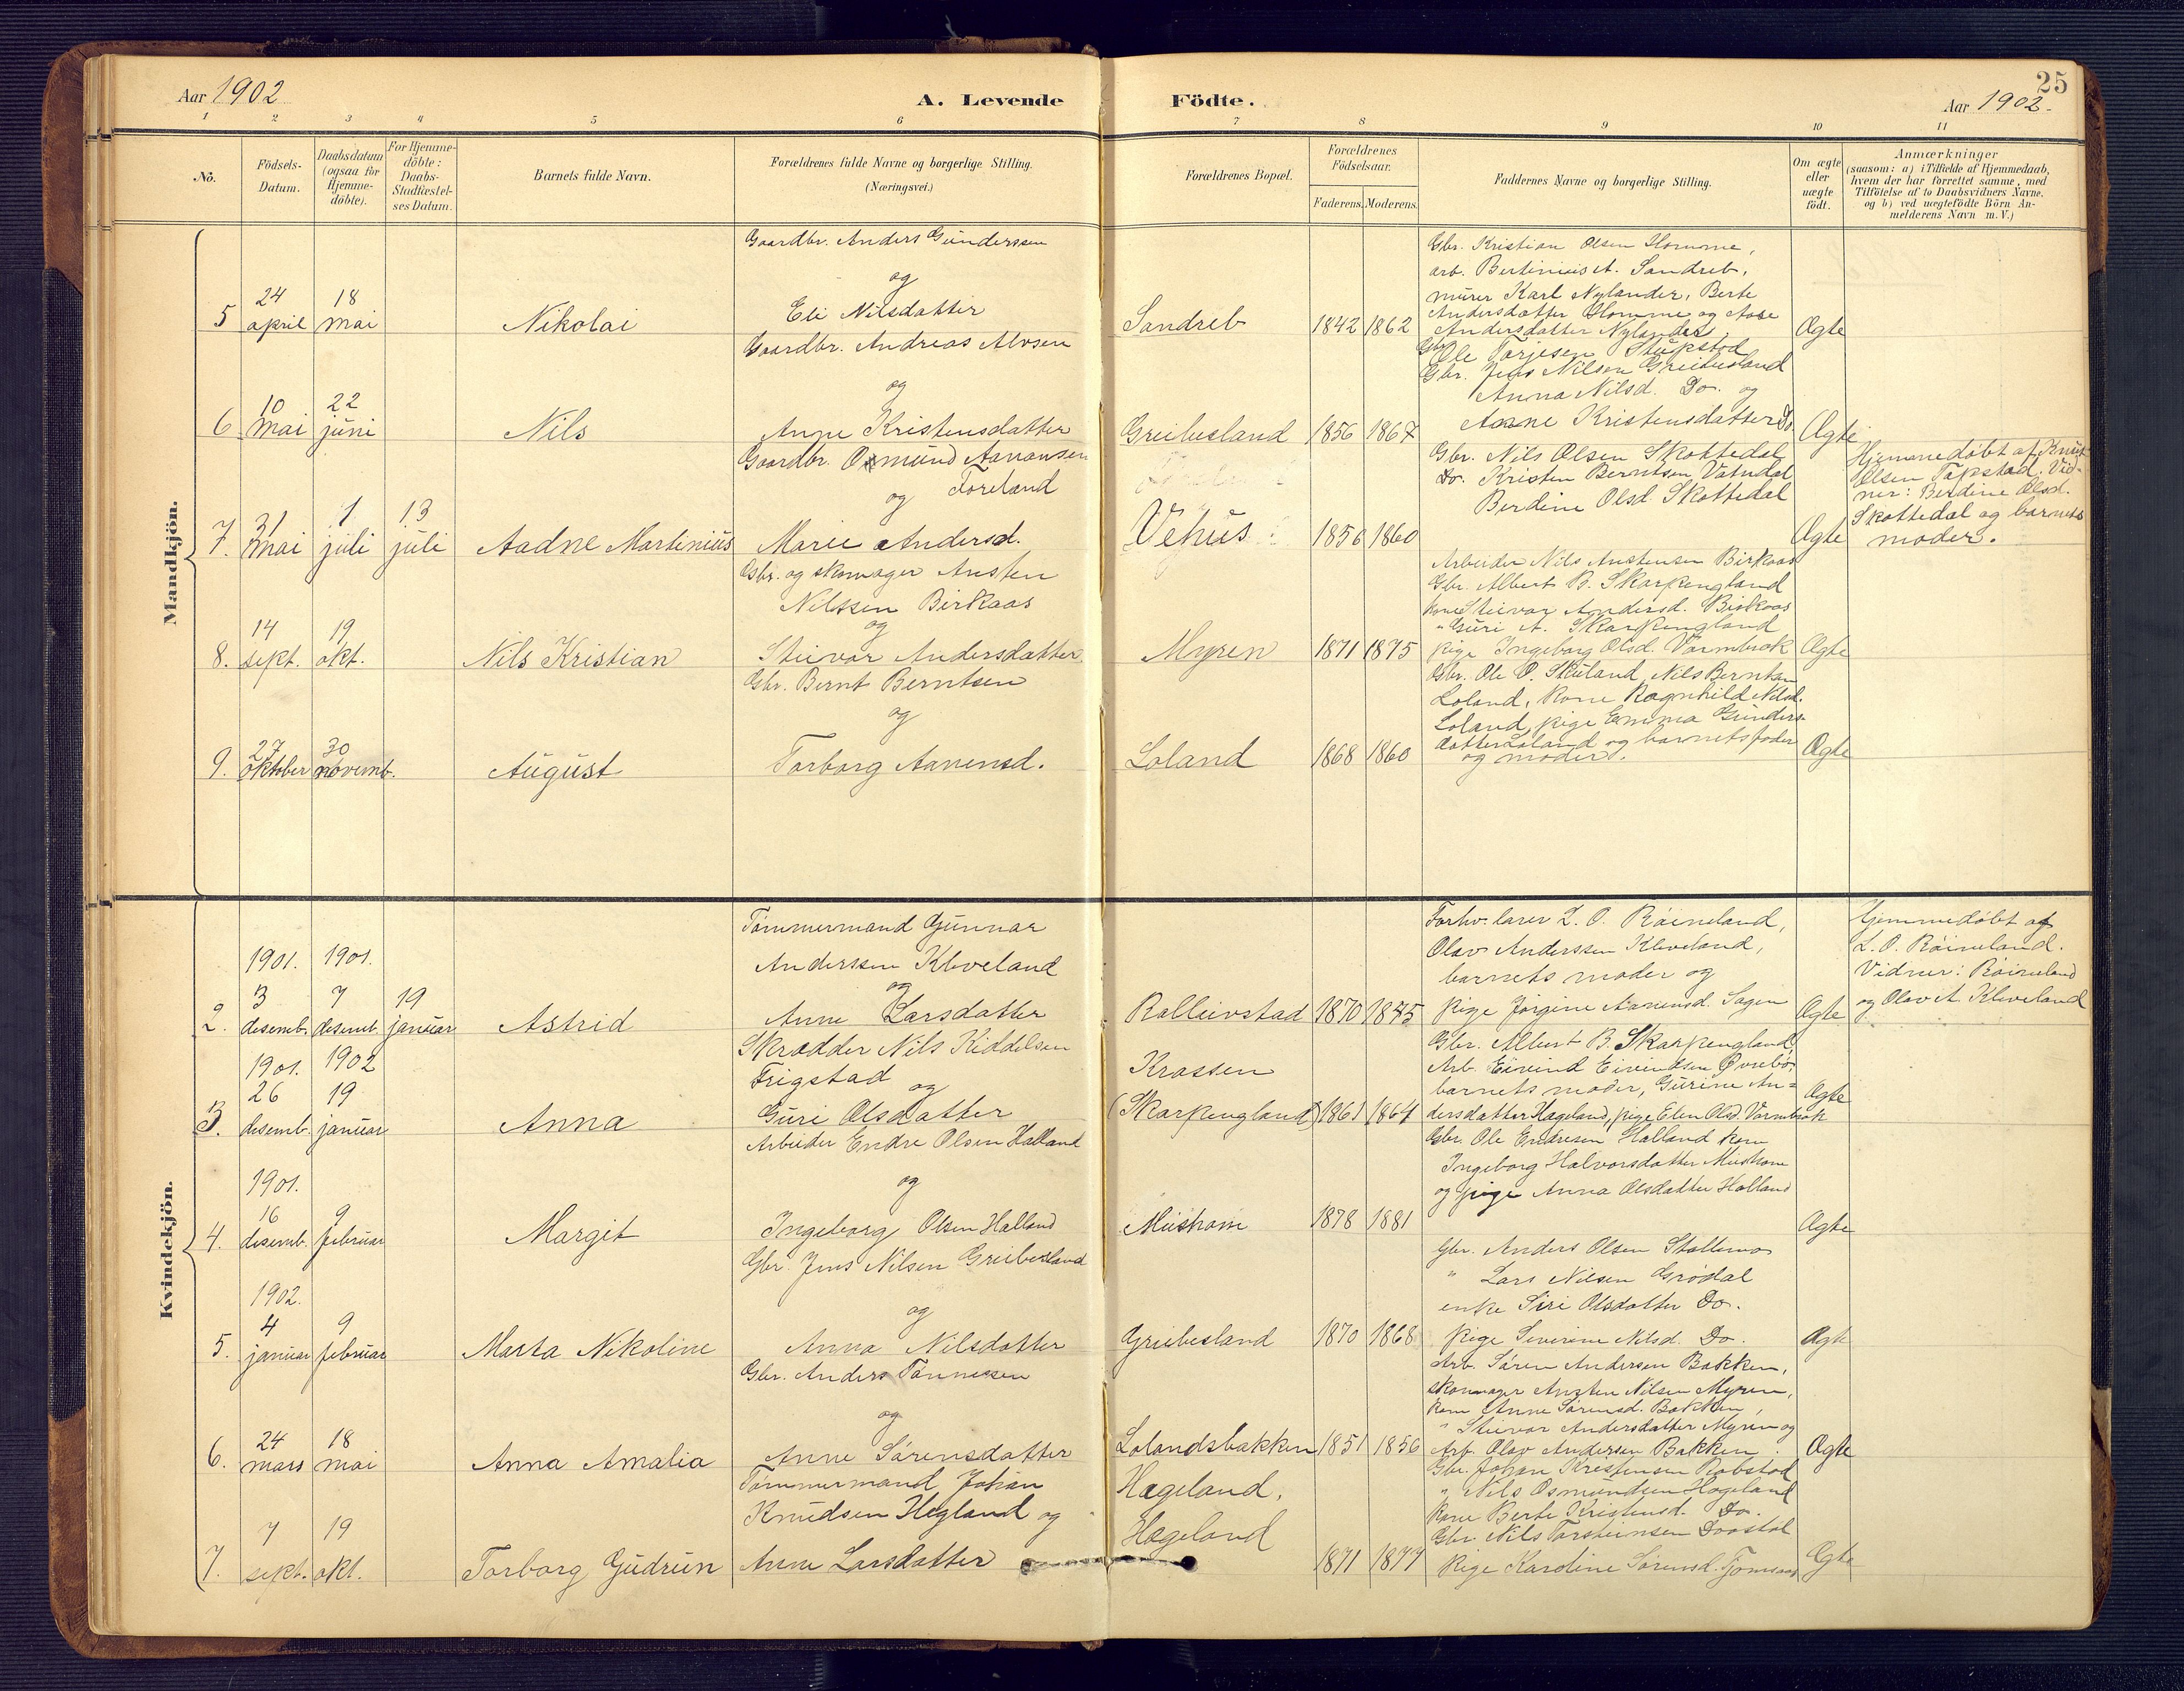 25
Aar 1902
A. Levende Födte.
Aar 1902.
1 2 3 4 5 6 7 8 9 10 11
No.
Födsels-Datum.
Daabsdatum (ogsaa för Hjemmedöbte).
For Hjemmedöbte: Daabs-Stadfæstelses Datum.
Barnets fulde Navn.
Forældrenes fulde Navne og borgerlige Stilling.
(Næringsvei.)
Forældrenes Bopæl.
Forældrenes Födselsaar.
Faderens. Moderens.
Faddernes Navne og borgerlige Stilling.
Om ægte eller uægte födt.
Anmærkninger
(saasom: a) i Tilfælde af Hjemmedaab,
hvem der har forrettet samme, med
Tilföielse af to Daabsvidners Navne.
og b) ved uægtefödte Börn An-
melderens Navn m. V.)
Mandkjön.
5 24 april 18 mai Nikolai
Gaardbr. Anders Gunderssen
og
Eli Nilsdatter
Sandreb 1842 1862
Gbr. Kristian Olsen Homme,
arb. Bertinius A. Sandreb,
murer Karl Nylander, Berte
Andersdatter Homme og Aase
Andersdatter Nylander.
Ægte
6 10 mai 22 juni Nils
Gaardbr. Andreas Alvsen
og
Anne Kristensdatter
Greibesland 1856 1867
Gbr. Ole Tarjesen Stupstad
Gbr. Jens Nilsen Greibesland
Anna Nilsd. Do. og
Aanne Kristensdatter Do
Ægte
7. 31 mai 1 juli 13 juli Aadne Martinius
Gaardbr. Osmund Aanansen
og Foreland
Marie Andersd.
Vehus 1856 1860
Gbr. Nils Olsen Skottedal
Do. Kristen Berntsen Vatndal
Berdine Olsd. Skottedal
Ægte
Hjemmedøbt af Knut
Olsen Tapstad. Vid-
ner: Berdine Olsd.
Skottedal og barnets
moder.
8. 14 sept. 19 okt. Nils Kristian
Gbr. og skomager Austen
Nilssen Birkaas
og
Steivor Andersdatter
Myren 1871 1875
Arbeider Nils Austensen Birkaas
Gbr. Albert B. Skarpengland
kone Steivor Andersd. Birkaas
" Guri A. Skarpengland
pige Ingeborg Olsd. Varmbrok
Ægte
9. 27 oktober 30 novemb. August
Gbr. Bernt Berntsen
og
Torborg Aanensd.
Loland 1868 1860
Gbr. Ole O. Skuland, Nils Berntsen
Loland, kone Ragnhild Nilsd.
Loland, pige Emma Gunders-
datter Loland og barnets fader
og moder.
Ægte
Kvindekjön.
2. 1901. 3 desemb. 1901. 7 desemb. 19 januar Astrid
Tømmermand Gunnar
Anderssen Kleveland
og
Anne Larsdatter
Rolleivstad 1870 1875
Forhv. lærer L. O. Røineland,
Olav Anderssen Kleveland,
barnets moder og
pige Jørgine Aanensd. Sagen
Ægte
Hjemmedøbt af
L. O. Røineland.
Vidner: Røineland
og Olav A. Kleveland
3. 1901. 26 desemb. 1902 19 januar Anna
Skrædder Nils Kiddelsen
Frigstad og
Guri Olsdatter
Krossen
(Skarpengland) 1861 1864
Gbr. Albert B. Skarpengland
Arb. Eivind Eivendsen Øvrebø
barnets moder, Gurine An=
dersdatter Hageland, pige Elen Olsd. Varmbrok
Ægte
4. 1901. 16 desemb. 9 februar Margit
Arbeider Endre Olsen Halland
og
Ingeborg Olsen Halland
Mushom 1878 1881
Gbr. Ole Endresen Halland kone
Ingeborg Halvorsdatter Mushom
og pige Anna Olsdatter Halland
Ægte
5. 1902. 4 januar 9 februar Marta Nikoline
Gbr. Jens Nilsen Greibesland
og
Anna Nilsdatter
Greibesland 1870 1868
Gbr. Anders Olsen Stallemo
" Lars Nilsen Grødal
enke Siri Olsdatter Do.
pige Severine Nilsd. Do.
Ægte
6. 24 mars 18 mai Anna Amalia
Gbr. Anders Tønnesen
og
Anne Sørensdatter
Lolandsbakken 1851 1856
Arb. Søren Andersen Bakken,
skomager Austen Nilsen Myren,
kone Anne Sørensd. Bakken,
" Steivor Andersdatter Myren og
Arb. Olav Andersen Bakken.
Ægte
7. 7 sept. 19 okt. Torborg Gudrun
Tømmermand Johan
Knudsen Hegland og
Anne Larsdatter
Hageland,
Hageland 1871 1877
Gbr. Johan Kristensen Robstad
" Nils Osmundsen Hageland
kone Berte Kristensd. Do.
Gbr. Nils Torsteinsen Doastøl
pige Karoline Sørensd. Tjomsaas
Ægte